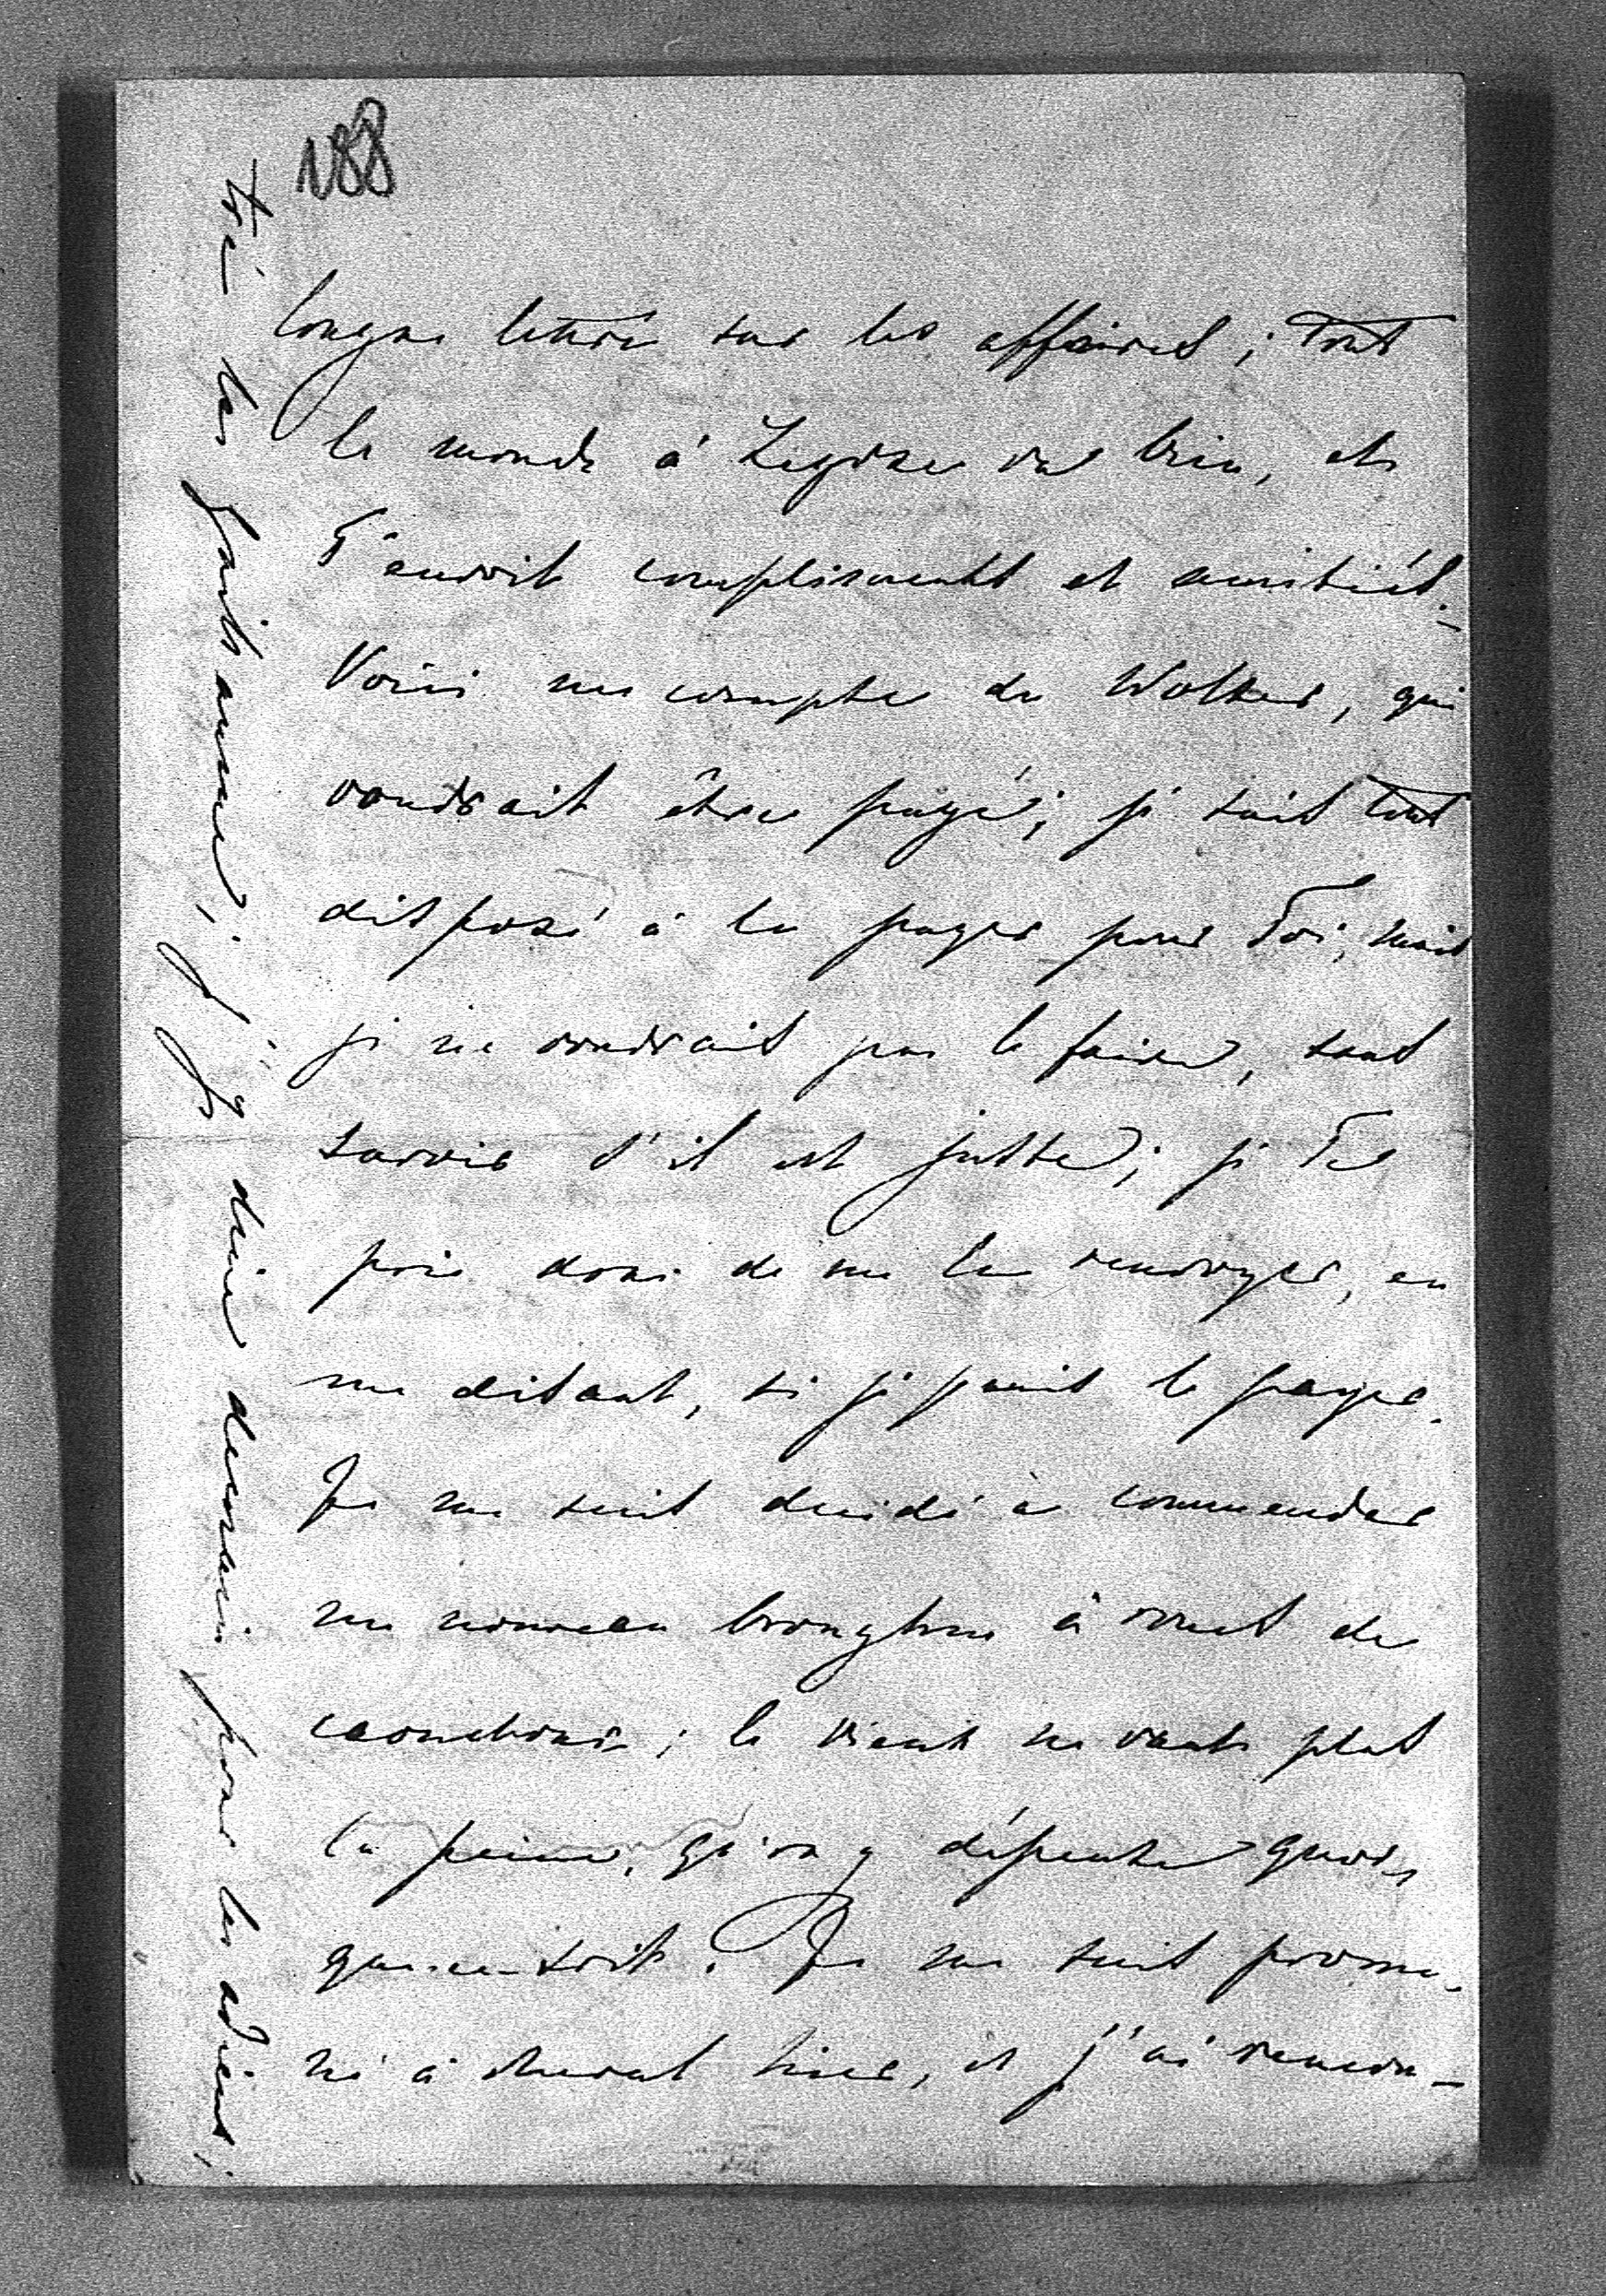 188
longue lettre sur les affaires ; tout
le monde à va bien, et
T'envoit compliments et amitiés.
Voici un compte de Wolters, qui
voudrait être payé ; je suis tout
disposé à le payer pour Toi, mais
je ne voudrais pas le faire, sans
savoir s'il est juste ; je Te
prie donc de me le renvoyer, en
me disant, si je puis le payer.
Je me suis decidé à commander
un nouveau brougham à roues de
caoutchouc ; le vieux ne vaut plus
la peine, qu'on y dépense quoi-
que-ce-soit. Je me suis prome-
né à cheval hier, et j'ai rencon-
tré les ; j'y dine demain pour les adieux ;